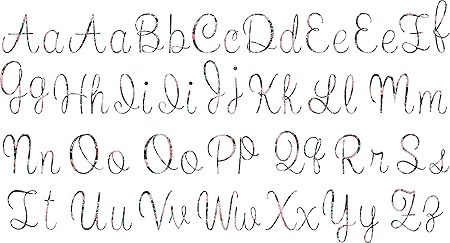 Aa Aa Bb Cc Dd Ee Ee Ff
Gg Hh Ii Ii Jj Kk Ll Mm
Nn Oo Oo Pp Qq Rr Ss
Tt Uu Vv Ww Xx Yy Zz